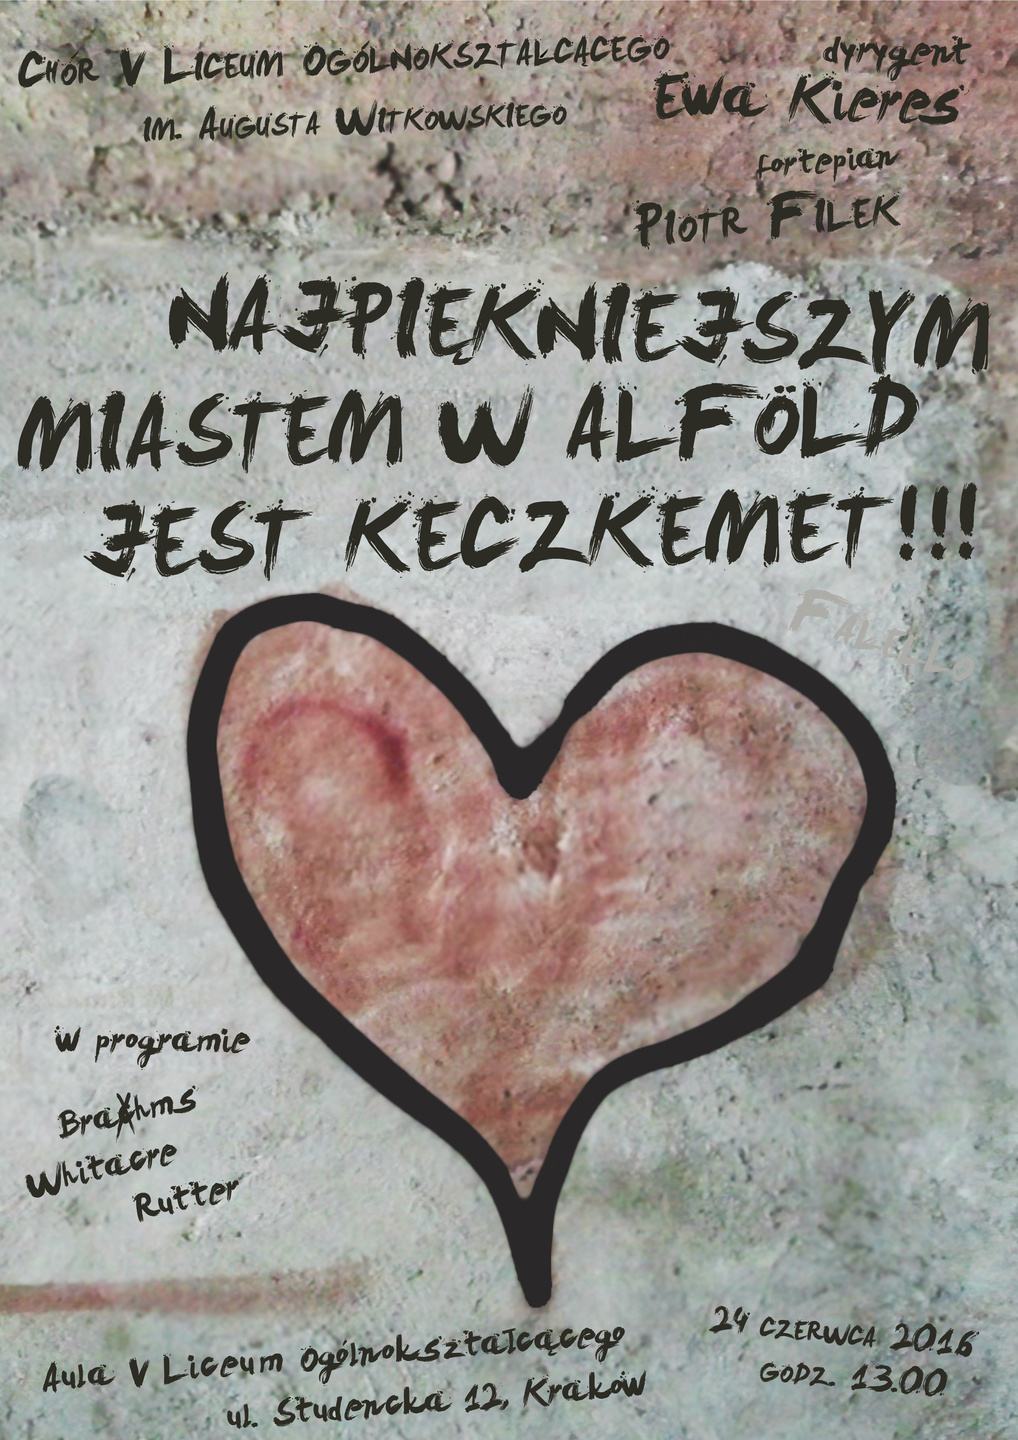 Chór V Liceum Ogólnokształcącego
im. Augusta Witkowskiego
dyrygent
Ewa Kieres
fortepian
Piotr Filek
NAJPIĘKNIEJSZYM
MIASTEM W ALFÖLD
JEST KECZKEMET!!!
w programie
Braxhms
Whitacre
Rutter
Aula V Liceum Ogólnokształcącego
ul. Studencka 12, Kraków
24 czerwca 2016
godz. 13.00